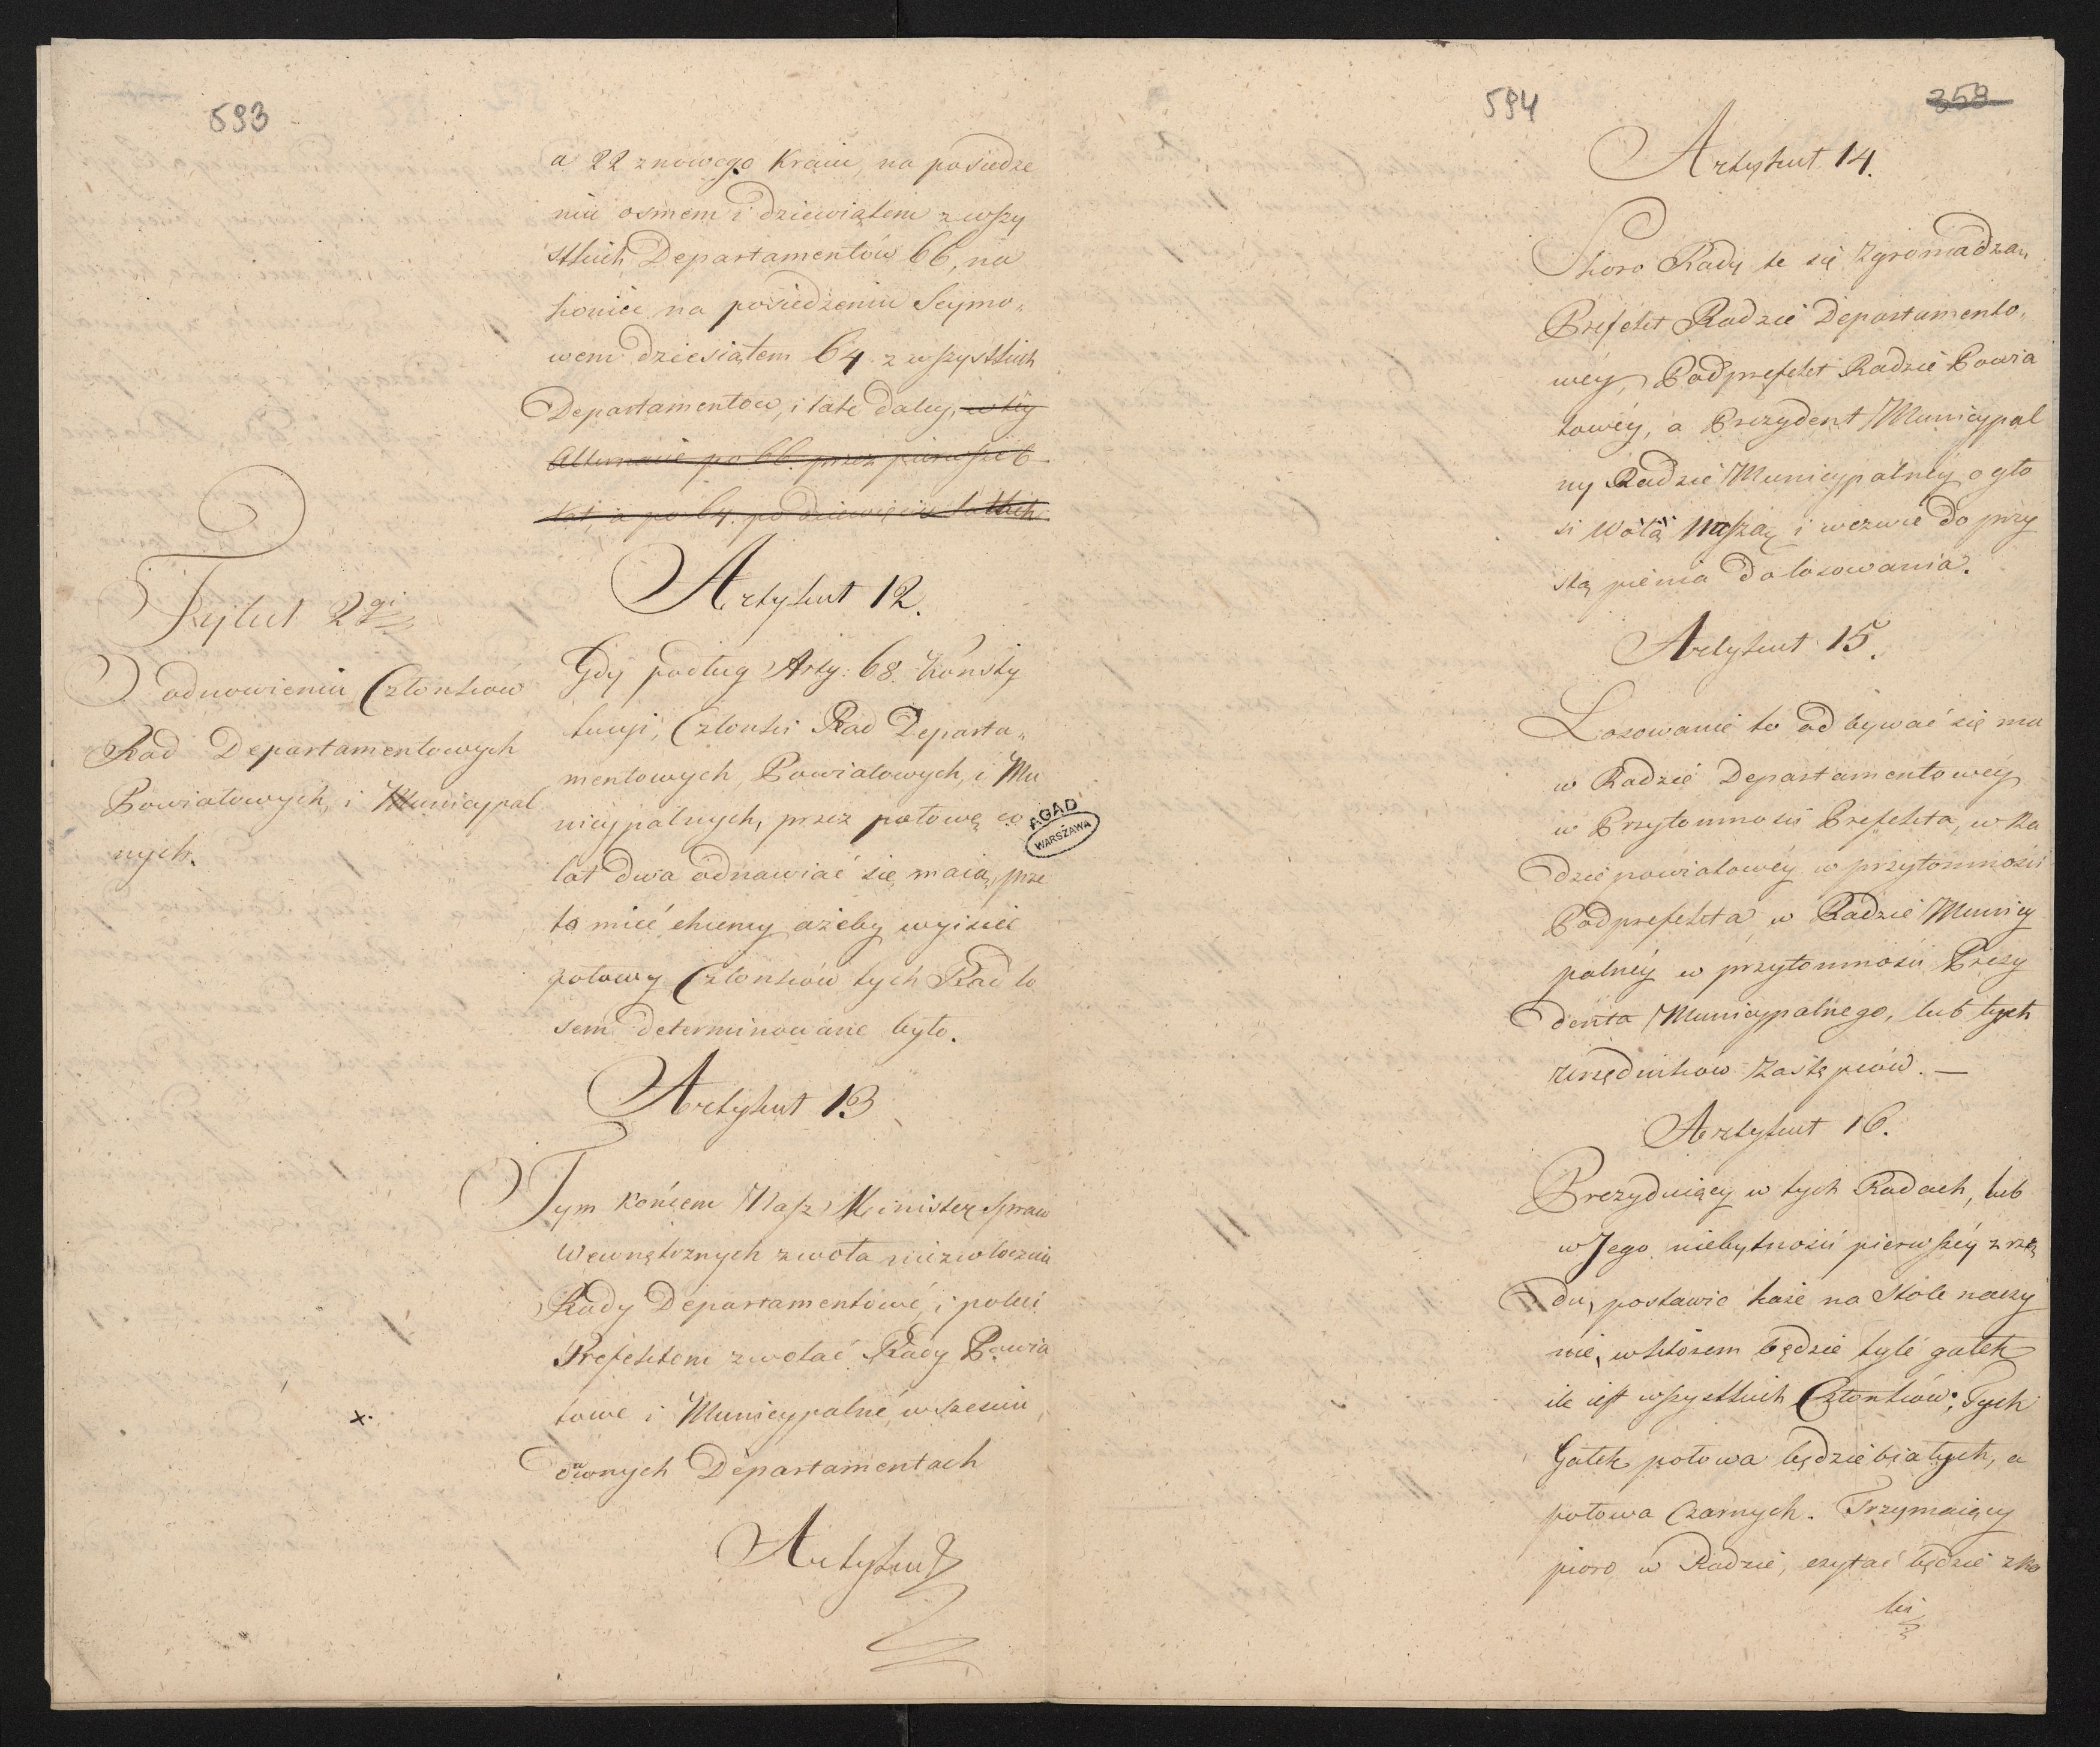 593
a 22 z nowego Kraiu, na posiedze
niu osmem i dziewiątem z wszy
stkich Departamentów 66, na
koniec na posiedzeniu Seymo„
wem dziesiątem 64 z wszystkich
Departamentów, i tak daley, w tey
Alternacie po 66. przez pierwsze 6
lat, a po 64. po dziewięciu latach
Tytuł 2gi
O odnowieniu Członków
Rad Departamentowych
Powiatowych, i Municypal
nych.
Artykuł 12.
Gdy podług Arty: 68. Konsty
tucyi, Członki Rad Departa„
mentowych, Powiatowych, i Mu
nicypalnych, przez połowę co
lat dwa odnawiać się maią, prze
to mieć chcemy ażeby wyiście
połowy Członków tych Rad lo
sem determinowane było.
Artykuł 13
Tym końcem Nasz Minister Spraw
Wewnętrznych zwoła niezwłocznie
Rady Departamentowe, i poleci
Prefektom zwołać Rady Powia
towe i Municypalne w sześciu
dawnych Departamentach
Artykuł
AGAD
WARSZAWA
594
358
Artykuł 14.
Skoro Rady te się zgromadzą,
Prefekt Radzie Departamento„
wéy, Podprefekt Radzie Powia
towéy, a Prezydent Municypal
ny Radzie Municypalnéy ogło
si wolą Naszą i wezwie do przy
stąpienia do losowania.
Artykuł 15.
Losowanie to odbywać się ma
w Radzie Departamentowéy
w Przytomności Prefekta, w Ra
dzie powiatowéy w przytomności
Podprefekta w Radzie Municy
palnéy w przytomności Prezy
denta Municypalnego, lub tych
urzędników Zastępców. —
Artykuł 16.
Prezyduiący w tych Radach, lub
w Jego niebytności pierwszéy z rzę
du, postawić każe na Stole naczy
nie, w którem będzie tyle gałek
ile iest wszystkich Członków; Tych
Gałek połowa będzie białych, a
połowa Czarnych. Trzymaiący
pioro w Radzie, czytać będzie z ko
lei